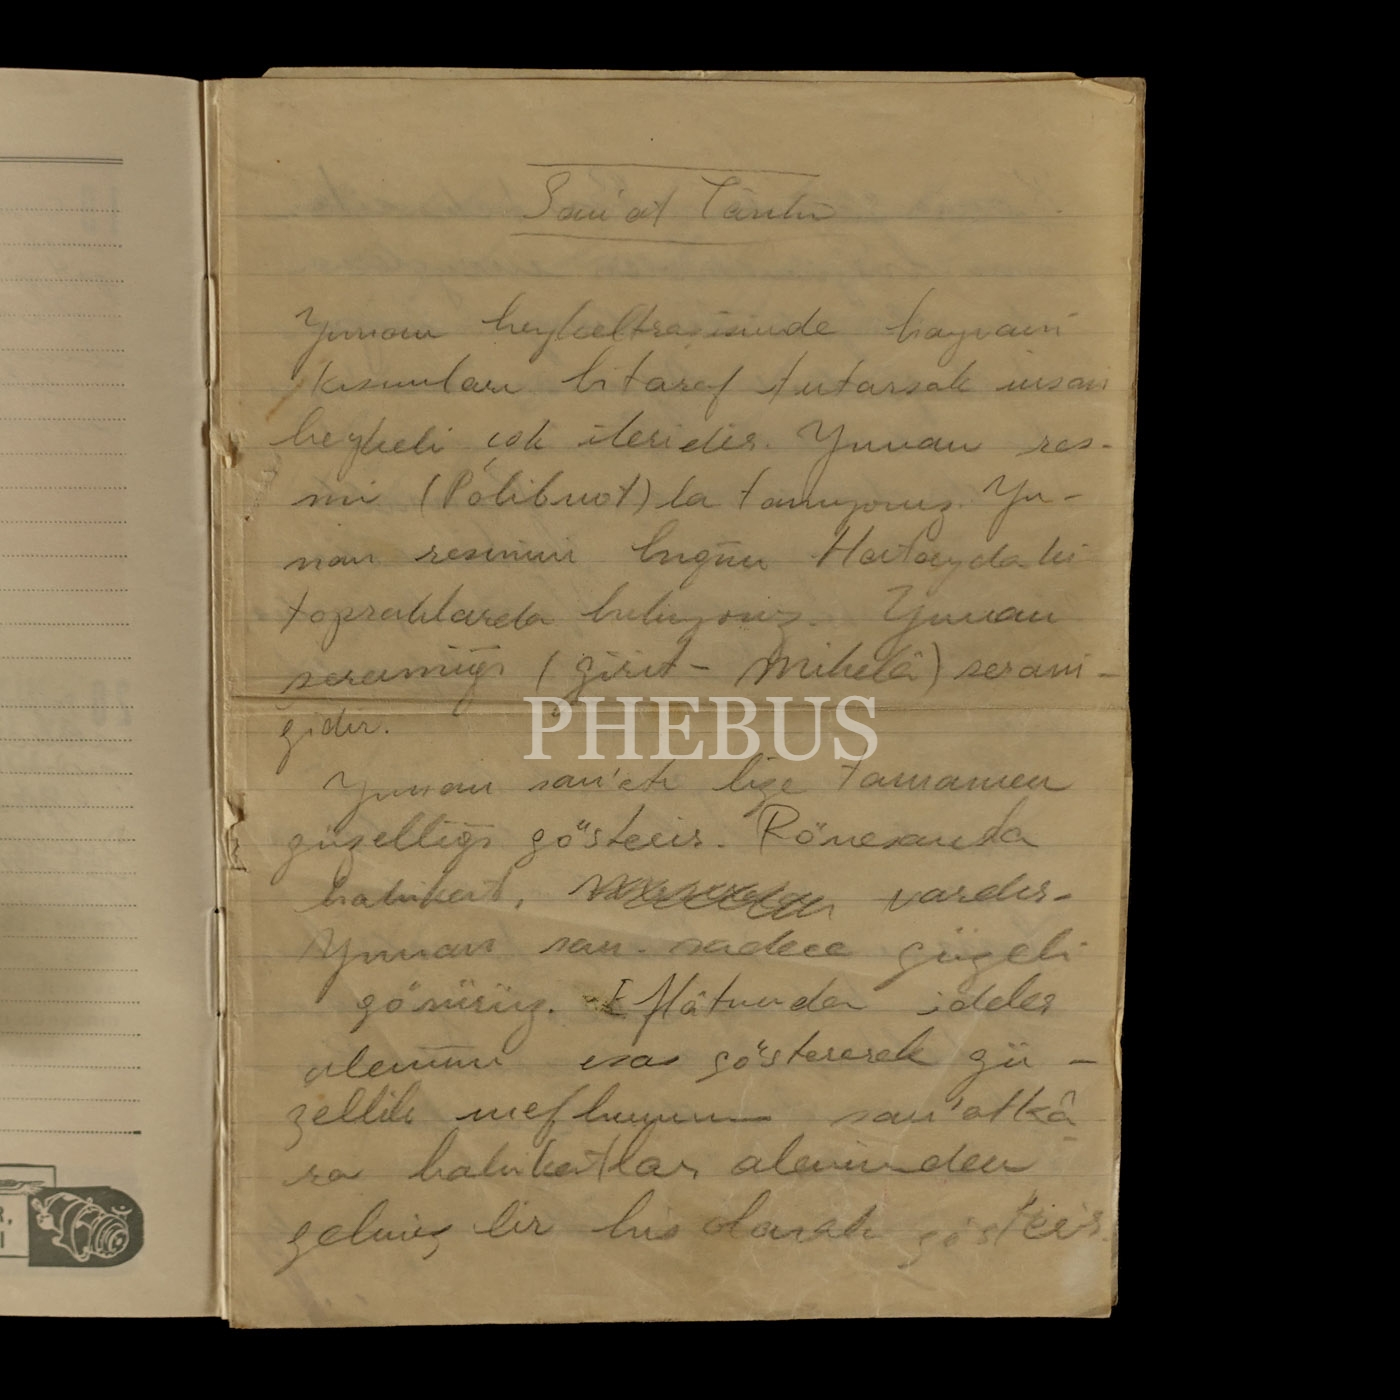 San'at Tarihi
Yunan heykeltraşisinde hayvani
kısımları bitaraf tutarsak insan
heykeli çok ileridir. Yunan res-
mi (Polibnot) la tanıyoruz. Yu-
nan resmini bugün Hataydaki
topraklarda buluyoruz. Yunan
seramiği (girit - Mikelâ) serami-
ğidir.
PHEBUS
Yunan san'atı bize tamamen
güzelliği gösterir. Rönesansta
hakikat, vardır.
Yunan san. sadece güzeli
görürüz. Eflâtunda ideler
alemini esas göstererek gü-
zellik mefhumunu san'atkâ
ra hakikatlar aleminden
gelmiş bir his olarak gösterir.
R,
İ